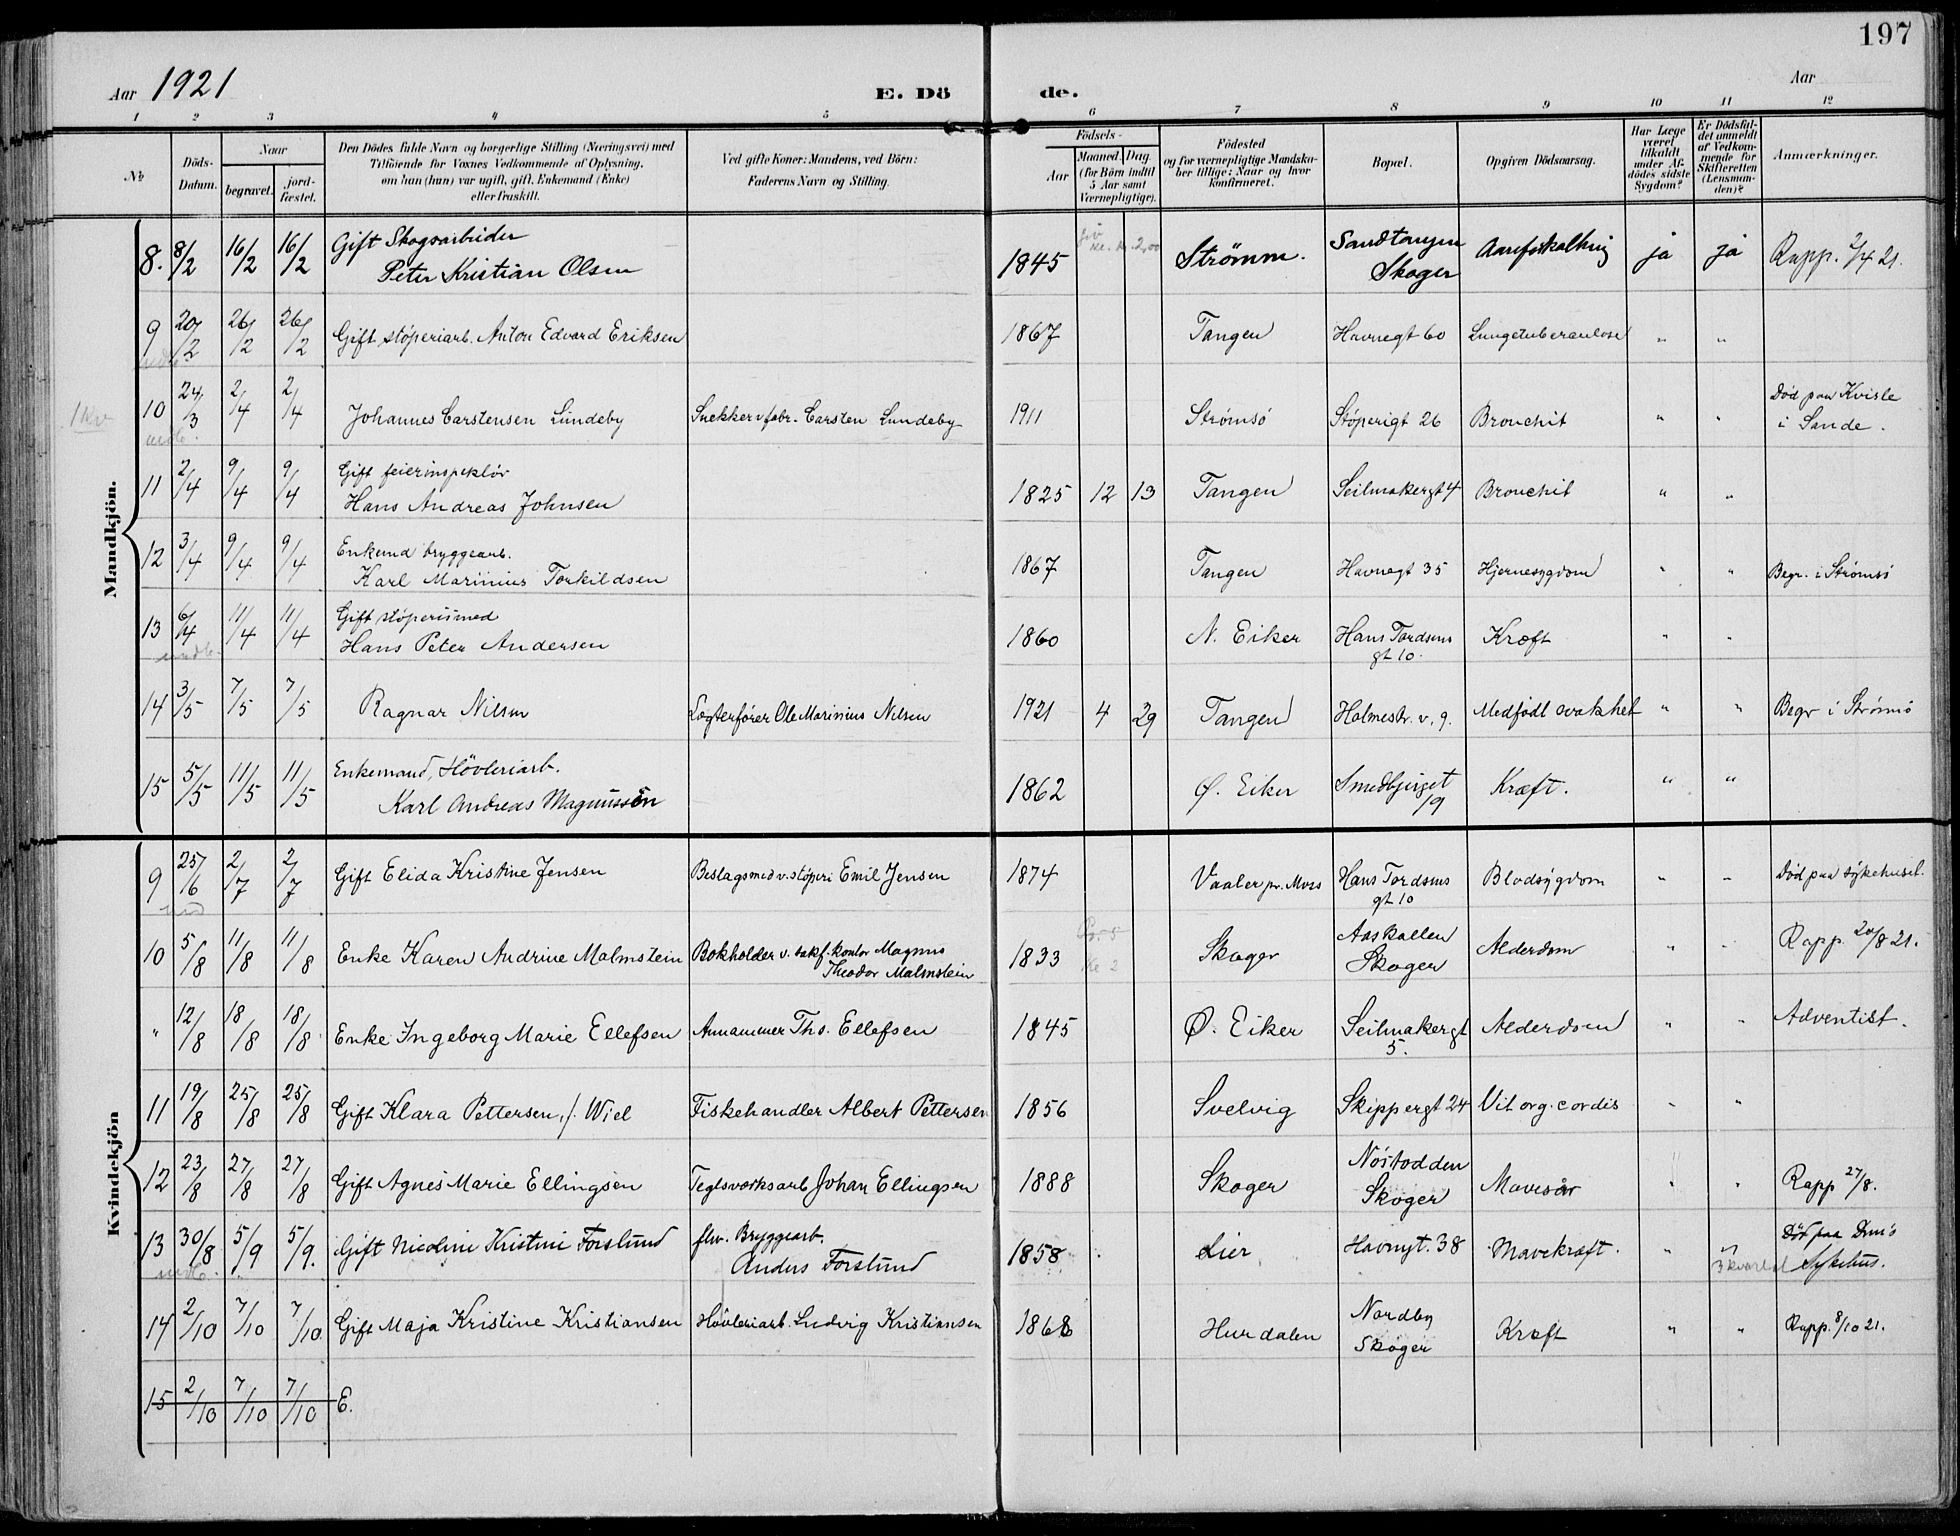 197
Aar 1921
E. Dö de.
Aar
1 2 3 4 5 6 7 8 9 10 11 12
№
Döds-Datum.
Naar
begravet.
jord-fæstet.
Den Dödes fulde Navn og borgerlige Stilling (Næringsvei) med
Tilföiende for Voxnes Vedkommende af Oplysning,
om han (hun) var ugift, gift, Enkemand (Enke)
eller fraskilt.
Ved gifte Koner: Mandens, ved Börn:
Faderens Navn og Stilling.
Födsels-
Aar
Maaned. Dag.
(for Börn indtil
5 Aar samt
Værnepligtige).
Födested
og for værnepligtige Mandska-
ber tillige: Naar og hvor
konfirmeret.
Bopæl.
Opgiven Dödsaarsag.
Har Læge
været
tilkaldt
under Af-
dödes sidste
Sygdom?
Er Dödsfal-
det anmeldt
af Vedkom-
mende for
Skifteretten
(Lensman-
den)?
Anmærkninger.
Mandkjön.
8. 8/2 16/2 16/2 Gift Skogsarbeider
Peter Kristian Olsen 1845 Strømm. Sandtangen
Skoger Aareforkalkning ja ja Rapp. 2/4 21.
9 20/2 26/2 26/2 Gift støperiarb. Anton Edvard Eriksen 1867 Tangen Havnegt 60 Lungetuberculose " "
1 Kv
10 24/3 2/4 2/4 Johannes Carstensen Lundeby Snekker v. fabr. Carsten Lundeby 1911 Strømsö Støperigt 26 Bronchit " " Død paa Kvisle
i Sande.
11 2/4 9/4 9/4 Gift feierinspektör
Hans Andreas Johnsen 1825 12 13 Tangen Seilmakergt 4 Bronchit " "
12 3/4 9/4 9/4 Enkemd bryggearb.
Karl Marinius Torkildsen 1867 Tangen Havnegt 35 Hjernesygdom " " Begr. i Strømsö
13 6/4 11/4 11/4 Gift støperismed
Hans Peter Andersen 1860 N. Eiker Hans Tordsens
gt 10. Kræft " "
14 3/5 7/5 7/5 Ragnar Nilsen Logterfører Ole Marinius Nilsen 1921 4 29 Tangen Holmestr. v. 9. Medfødt svakhet " " Begr i Strømsö
15 5/5 11/5 11/5 Enkemand, Hövleriarb.
Karl Andreas Magnussen 1862 Ø. Eiker Smedbjerget
19 Kræft. " "
Kvindekjön
9 25/6 2/7 2/7 Gift Elida Kristine Jensen Beslagsmed v. støperi Emil Jensen 1874 Vaaler pr. Moss Hans Tordsens
gt 10 Blodsygdom " " Död paa sykehuset.
10 5/8 11/8 11/8 Enke Karen Andrine Malmstein Bokholder v. sakf. kontor Magnus
Theodor Malmstein 1833 Skoger Aaskollen
Skoger Alderdom " " Rapp. 20/8 21.
" 12/8 18/8 18/8 Enke Ingeborg Marie Ellefsen Annammer Ths. Ellefsen 1845 Ø. Eiker Seilmakergt
5. Alderdom " " Adventist.
11 19/8 25/8 25/8 Gift Klara Pettersen, f. Wiel Fiskehandler Albert Pettersen 1856 Svelvig Skippergt 24 Vit. org. cordis " "
12 23/8 27/8 27/8 Gift Agnes Marie Ellingsen Teglsverksarb Johan Ellingsen 1888 Skoger Nöstodden
Skoger Mavesår " " Rapp 27/8.
13 30/8 5/9 5/9. Gift Nicoline Kristine Forslund fhv. Bryggearb.
Anders Forslund 1858 Lier Havngt. 38 Mavekræft. " " Död paa Drms
Sykehus.
3 kvartal
14 2/10 7/10 7/10 Gift Maja Kristine Kristiansen Hövleriarb. Ludvig Kristiansen 1868 Hurdalen Nordby
Skoger Kræft " " Rapp. 8/10 21.
15 2/10 7/10 7/10 E.